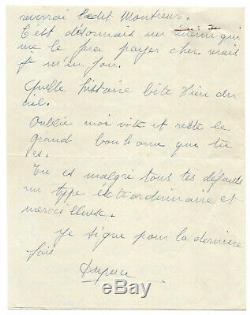 ledit Monsieur.
C'est désormais un ami qui
me le fera payer cher mais
Quelle histoire bête Dieu du
ciel.
Oublie moi vite et reste le
grand bonhomme que tu
es.
Tu es malgré tous tes défauts
un type extraordinaire et
merveilleux.
Je signe pour la dernière
fois